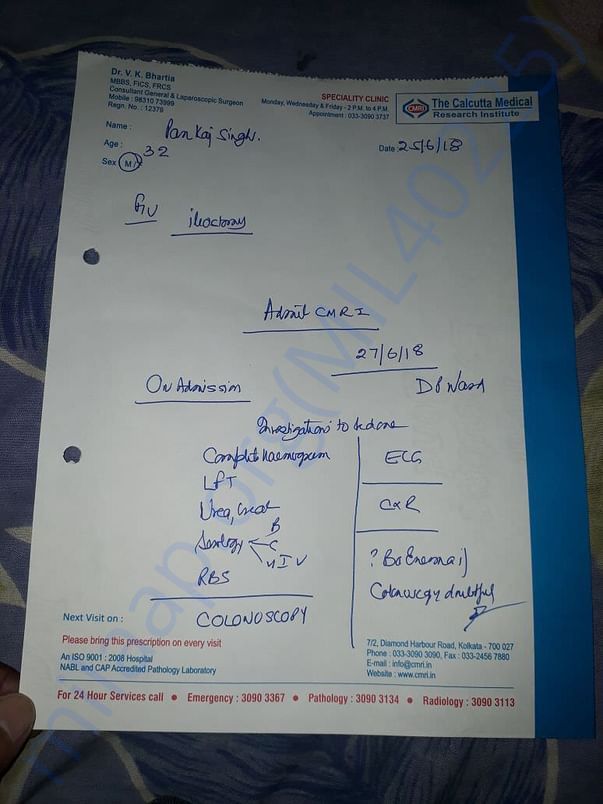 Dr. V. K. Bhartia
MBBS, FICS, FRCS
Consultant General & Laparoscopic Surgeon
Mobile : 98310 73999
Regn. No. : 12379
SPECIALITY CLINIC
Monday, Wednesday & Friday - 2 P.M. to 4 P.M.
Appointment : 033-3090 3737
CMRI
The Calcutta Medical
Research Institute
Name : Pankaj Singh.
Age : 32
Sex M/
Date 25/6/18
Admit CMRI
27/6/18
On Admission
DB Ward
Investigations to be done
Complete haemogram
LFT
Urea, Creat
Serology B
C
HIV
RBS
COLONOSCOPY
ECG
CXR
? Ba Enema if
Colonoscopy doubtful
Next Visit on :
Please bring this prescription on every visit
An ISO 9001 : 2008 Hospital
NABL and CAP Accredited Pathology Laboratory
7/2, Diamond Harbour Road, Kolkata - 700 027
Phone : 033-3090 3090, Fax : 033-2456 7880
E-mail : info@cmri.in
Website : www.cmri.in
For 24 Hour Services call • Emergency : 3090 3367 • Pathology : 3090 3134 • Radiology : 3090 3113